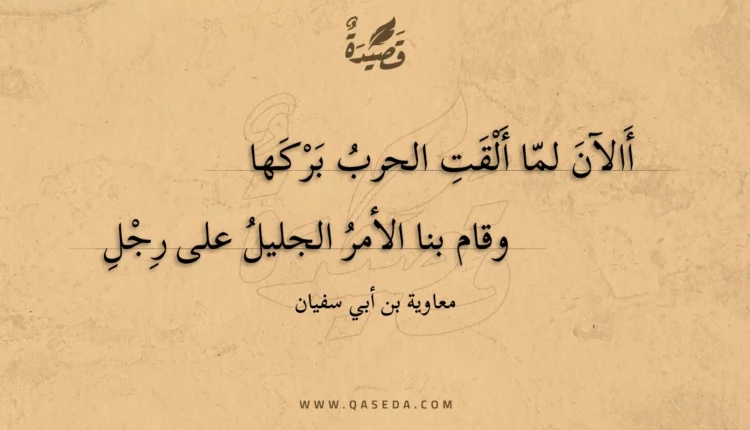 قَصِيْدَةٌ
أَالآنَ لمّا أَلْقَتِ الحربُ بَرْكَها
وقام بنا الأمرُ الجليلُ على رِجْلِ
معاوية بن أبي سفيان
WWW.QASEDA.COM